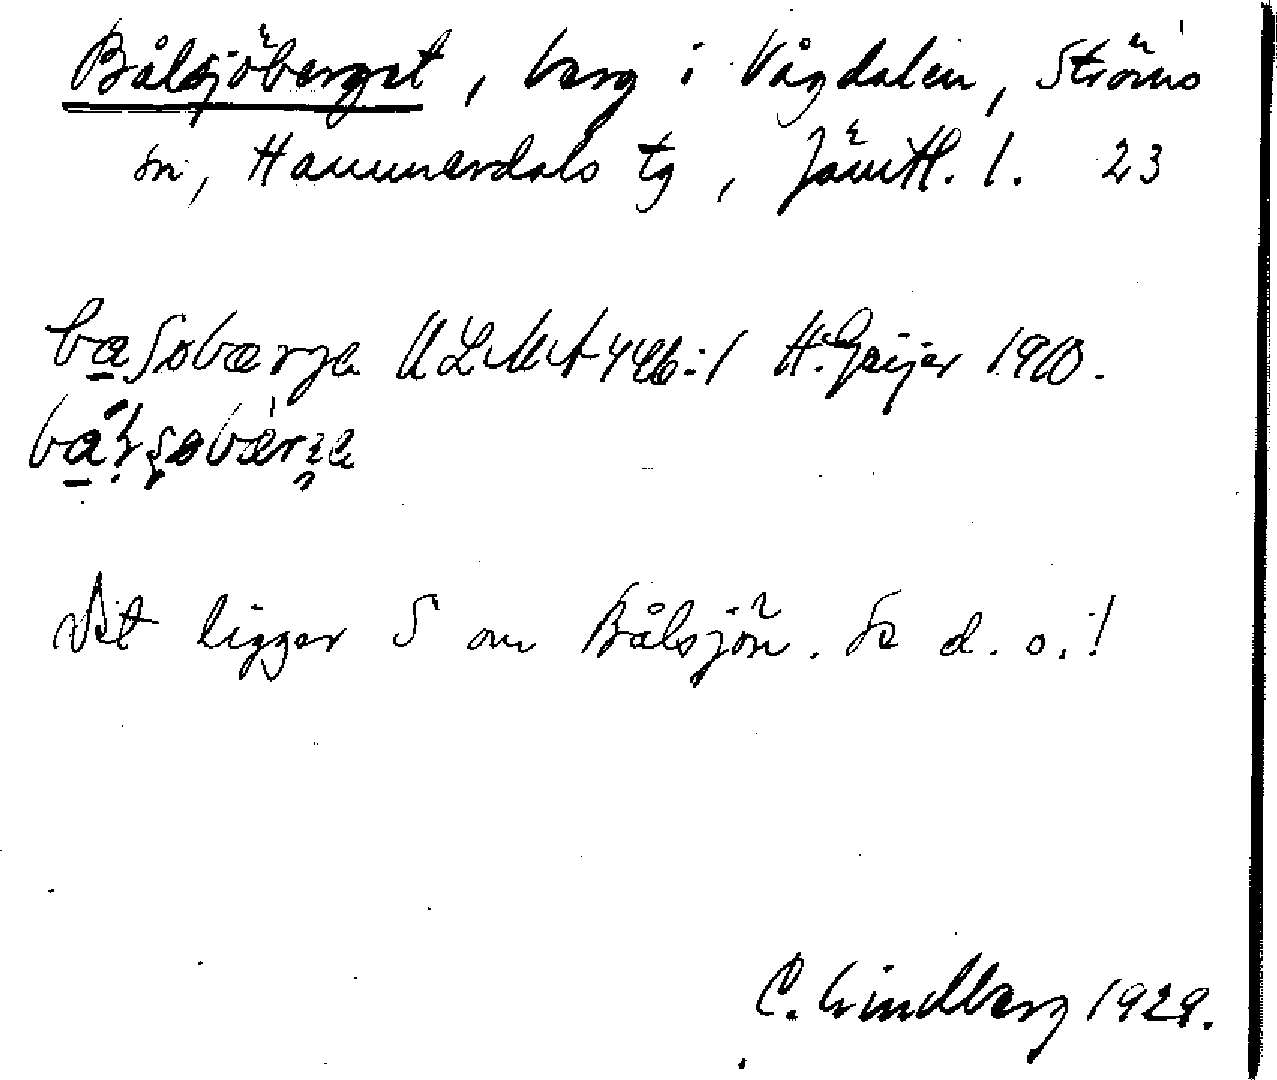 Bålsjöberget, berg i Vågdalen, Ströms
sn, Hammerdals tg, Jämtl. l. 23
ULMA 446:1 H. Geijer 1910.
Det ligger S om Bålsjön. Se d. o.!
C. Lindberg 1929.